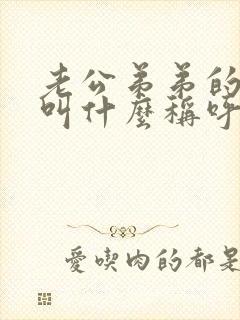 老公弟弟的
叫什麼稱呼
愛喫肉的都是